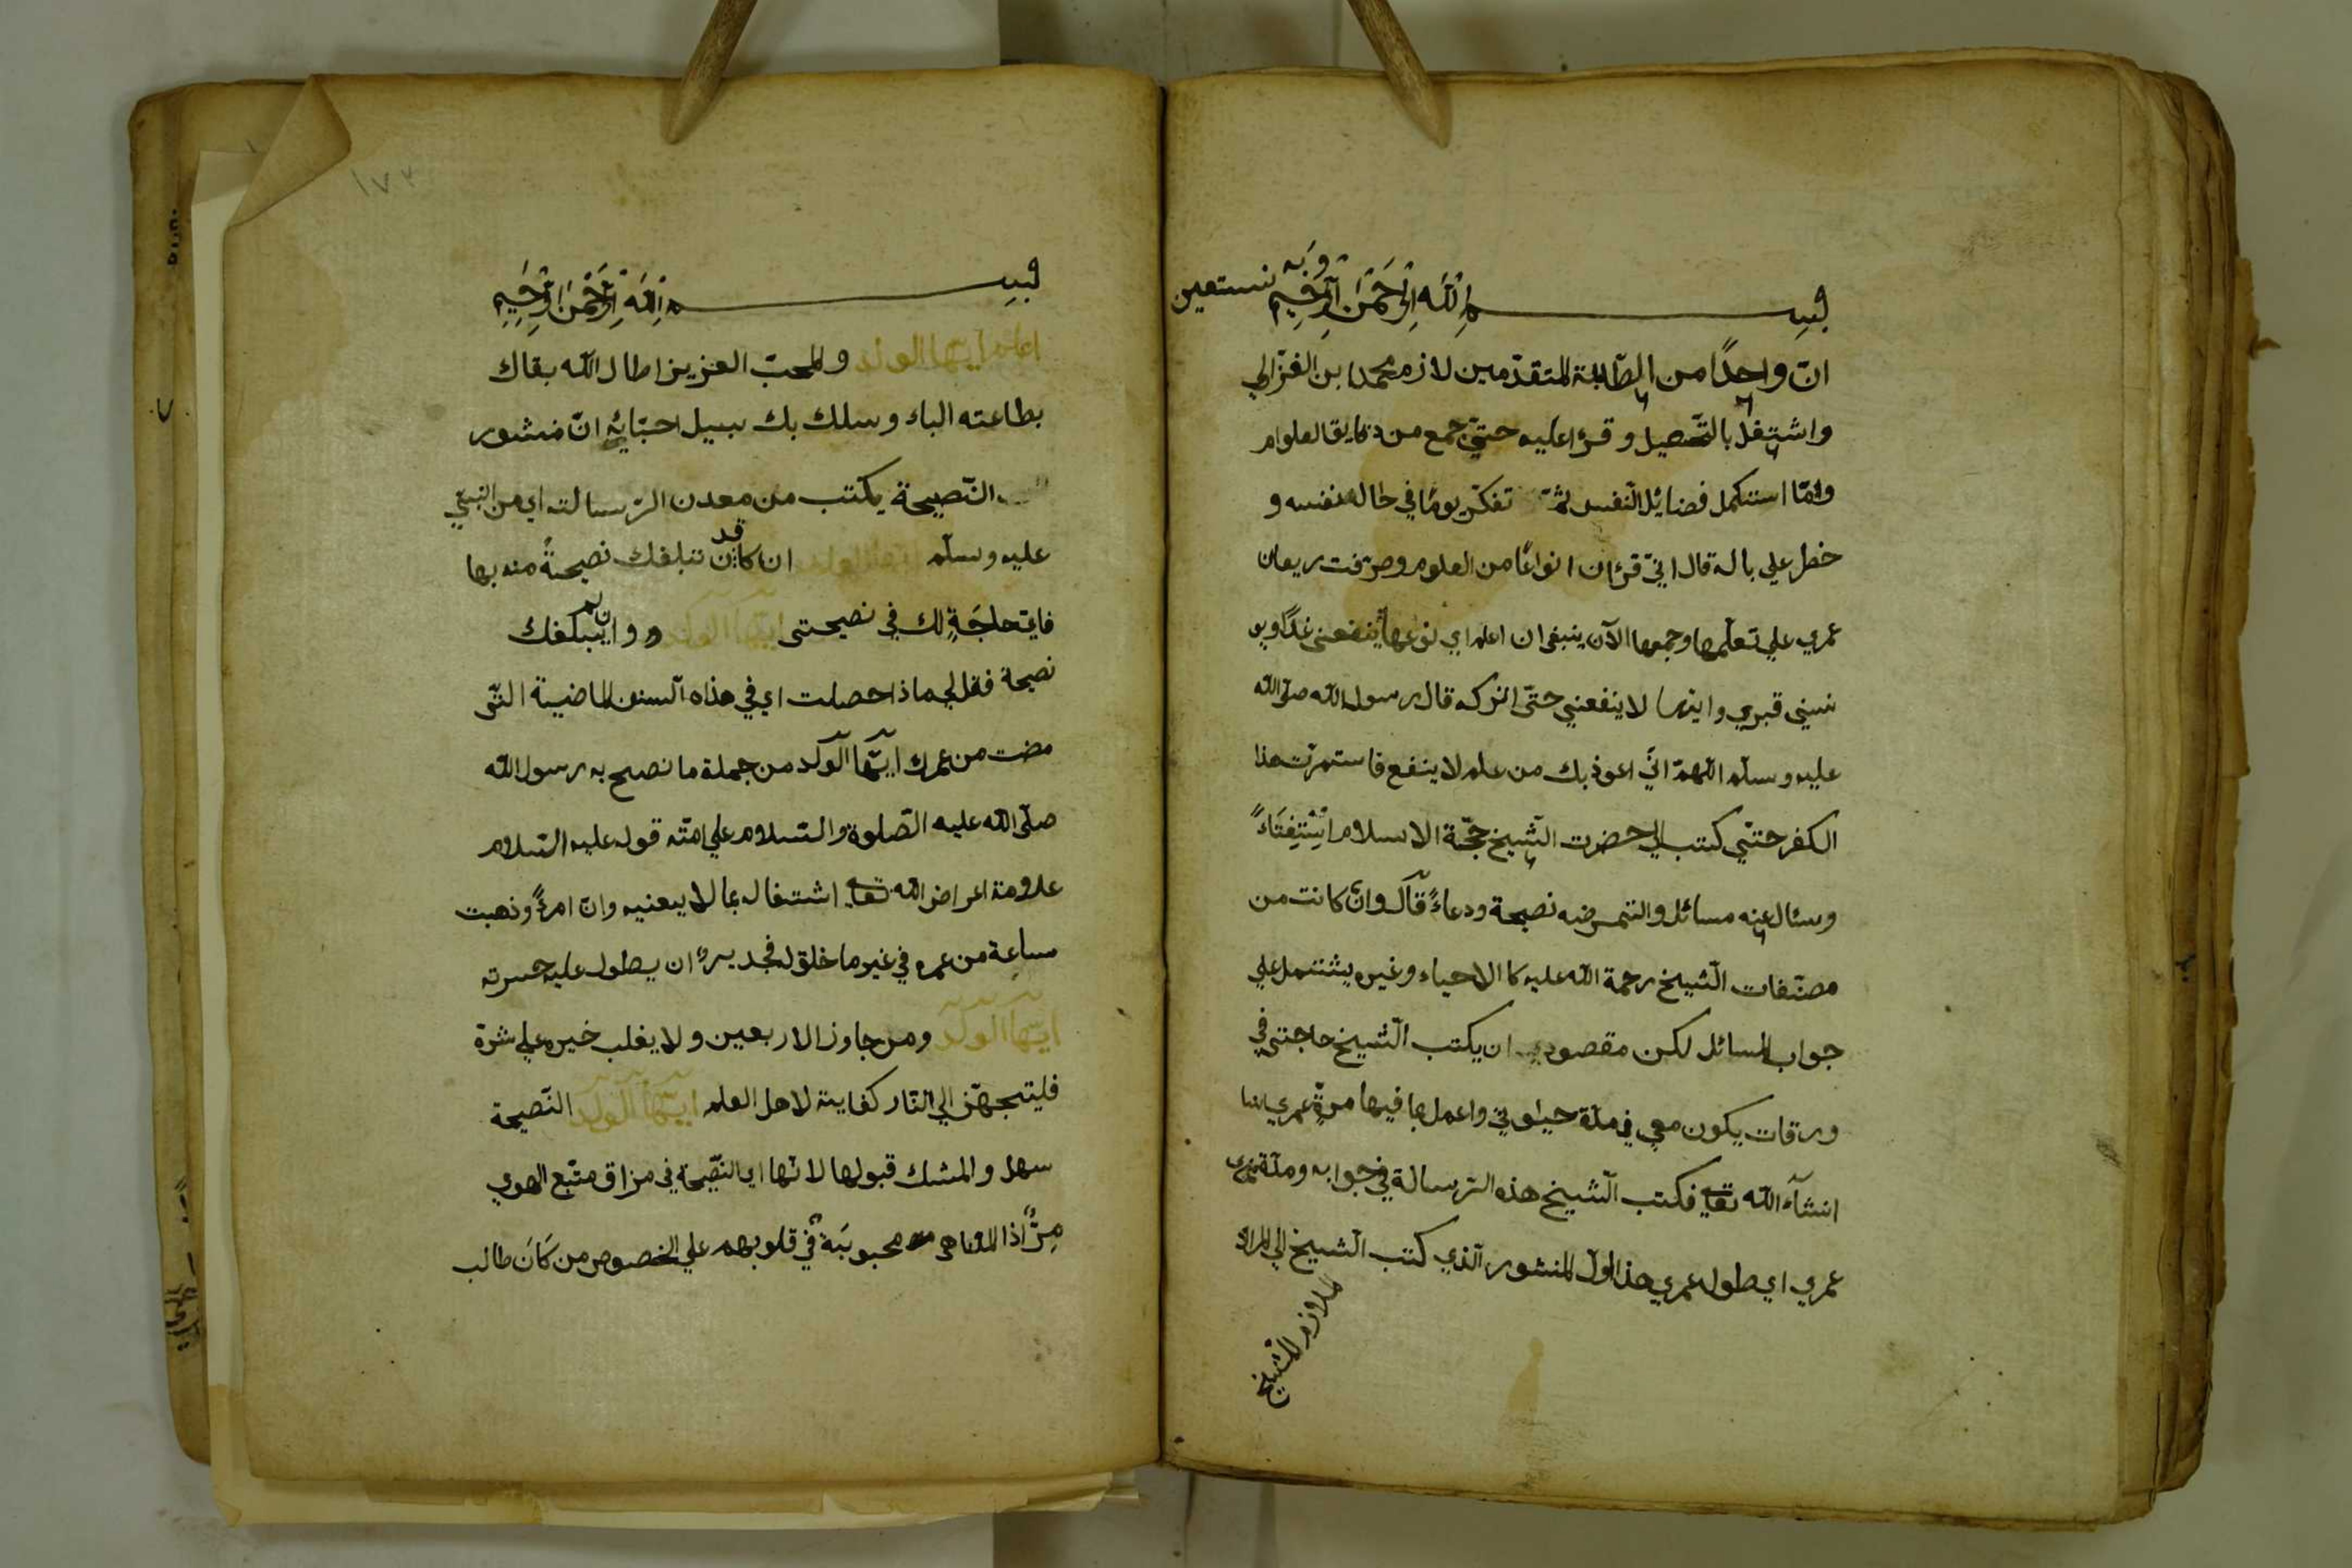 بسم الله الرحمن الرحيم وبه نستعين
انّ واحدًا من الطّلبة المتقدّمين لازم محمد ابن الغزّالي
واشتغل بالتّحصيل وقرء عليه حتّي جمع من دقايق العلوم
ولمّا استكمل فضائل النّفس ثمّ تفكّر يومًا في حاله نفسه و
خطر علي باله قال انّي قرئت انواعًا من العلوم وصرّفت ريعان
عمري علي تعلّمها وجمعها الآن ينبغي ان اعلم اي نوعها ينفعني غدًا ويو
نسني قبري وايّها لا ينفعني حتّي اتركه قال رسول الله صلّي الله
عليه وسلّم اللّهمّ انّي اعوذ بك من علم لا ينفع فاستمرّت هذا
الكفر حتّي كتب الي حضرت الشّيخ حجّة الاسلام اِسْتِفْتَاءً
وسئال عنه مسائل والتمس منه نصيحة ودعاءً قال وان كانت من
مصنّفات الشّيخ رحمة الله عليه كالاحياء وغيره يشتمل علي
جواب المسائل لكن مقصودي ان يكتب الشّيخ حاجتي في
ورقات يكون معي في مدّة حيوتي واعمل بما فيها مدّة عمري
انشآء الله تعالي فكتب الشّيخ هذه الرّسالة في جوابه ومدّة
عمري اي طول عمري هذا اوّل المنشور الّذي كتب الشّيخ الي
ملازم الشّيخ
١٧٢
بسم الله الرحمن الرحيم
اعلم ايّها الولد والمحبّ العزيز اطال الله بقاك
بطاعته الباء وسلك بك سبيل احبّائه انّ منشور
النّصيحة يكتب من معدن الرّسالة اي من النبيّ
عليه وسلّم ايّها الولد ان كان قد تبلغك نصيحةً منه بها
فايّ حاجَةٍ لك في نصيحتي ايّها الولد و وان لم يبلغك
نصيحة فقل لي ماذا حصلت اي في هذه السنين الماضية الّتي
مضت من عمرك ايّها الولد من جملة ما نصح به رسول الله
صلّي الله عليه الصّلوة والسّلام علي امّته قوله عليه السّلام
علامة اعراض الله تعالي اشتغال بما لا يعنيه وانّ امرءً وذهبت
ساعة من عمره في غير ما خلق له فجدير ان يطول عليه حسرته
ايّها الولد ومن جاوز الاربعين ولا يغلب خيره علي شرّه
فليتجهّز الي النّار كفاية لاهل العلم ايّها الولد النّصيحة
سهل والمشك قبولها لانّها اي النصّيحة في مزاق متّبع الهوي
مرٌّ اذا المناهي محبوبَة في قلوبهم علي الخصوص من كَانَ طالب